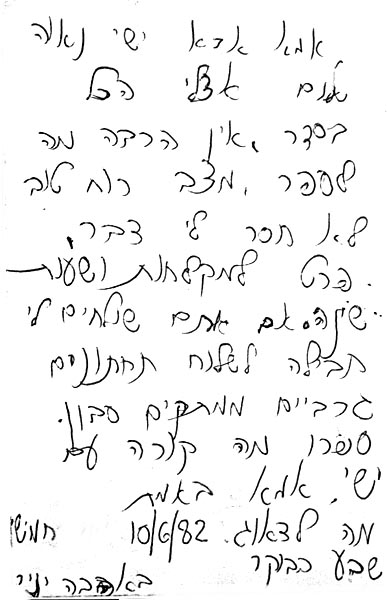 אמא אבא ישי נאוה
שלום אצלי הכל
בסדר. אין הרבה מה
לספר, מצב רוח טוב
לא חסר לי דבר,
פרט למקלחות ושעות
שינה. אם אתם שולחים לי
חבילה לשלוח תחתונים
גרביים ממתקים סבון.
ספרו מה קורה עם
ישי. אמא באמת
מה לדאוג. 10/6/82 חמישי
שבע בבוקר
באהבה יניר